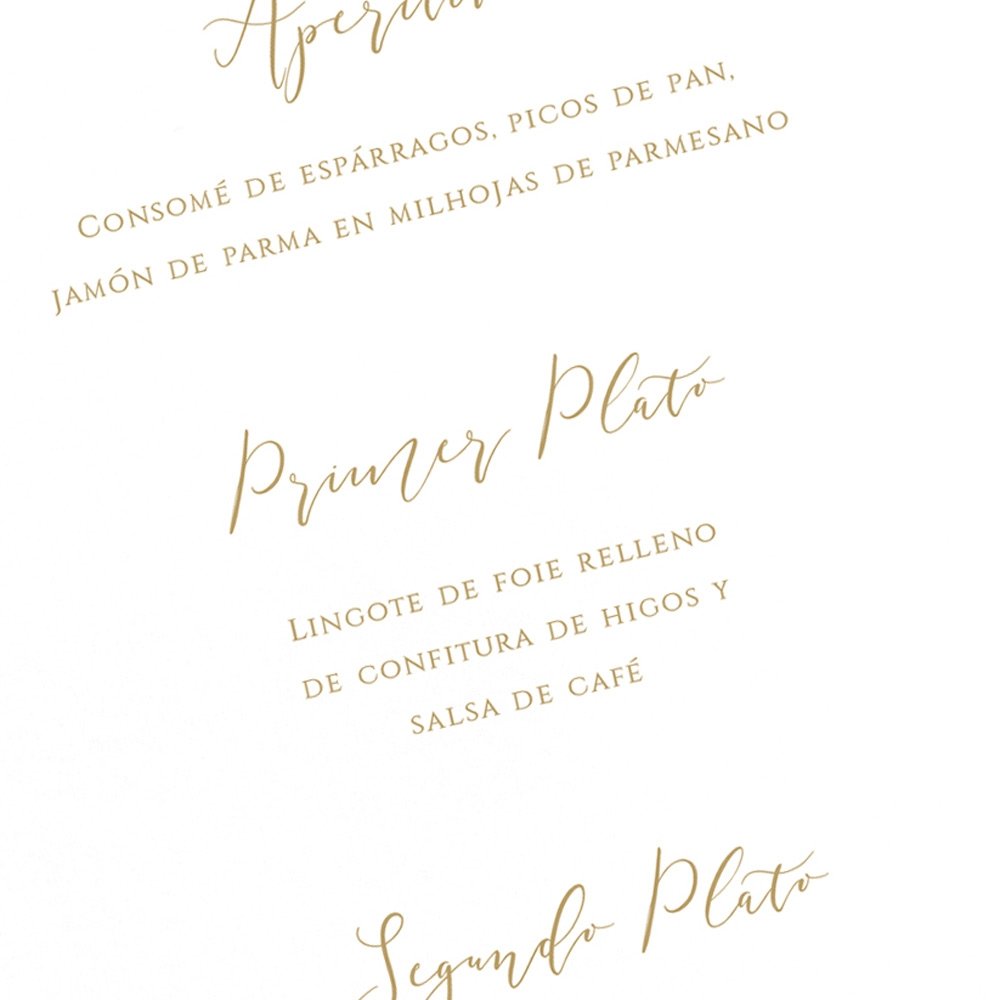 Consomé de espárragos, picos de pan,
jamón de parma en milhojas de parmesano
Primer Plato
Lingote de foie relleno
de confitura de higos y
salsa de café
Segundo Plato